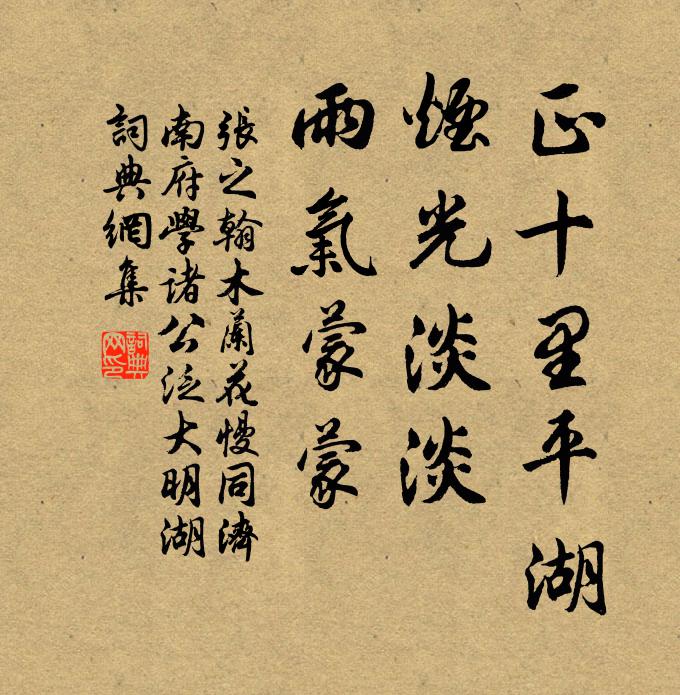 正十里平湖
煙光淡淡
雨氣蒙蒙
張之翰木蘭花慢同濟
南府學諸公泛大明湖
詞典網集
詞典
网印